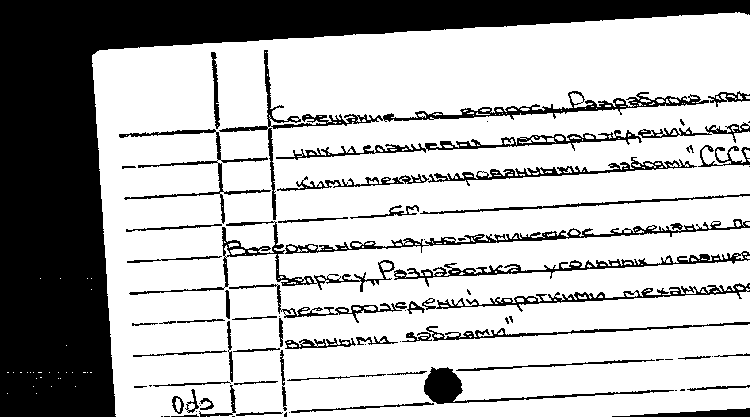 Совещание по вопросу „Разработка
ных и сланцевых месторождений корот
кими механизированными забоями" СССР
см.
Всесоюзное научно-техническое совещание по
вопросу „Разработка угольных и сланцев
месторождений короткими механизиро
ванными забоями"